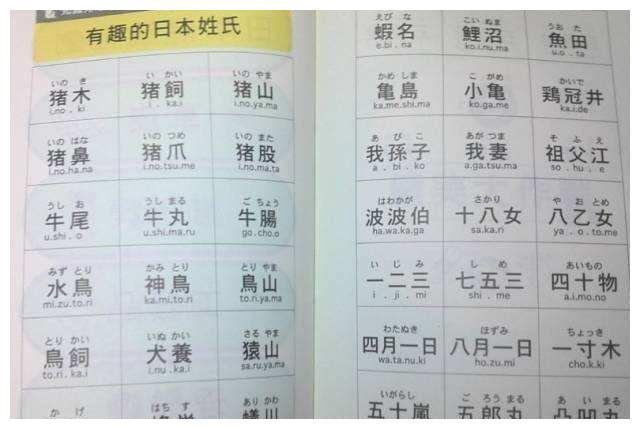 有趣的日本姓氏
いの き　い かい　いの やま
猪木　猪飼　猪山
i.no . ki　i . ka.i　i.no.ya.ma
いの はな　いの つめ　いの また
猪鼻　猪爪　猪股
i.no.ha.na　i.no.tsu.me　i.no.ma.ta
うし お　うし まる　ご ちょう
牛尾　牛丸　牛腸
u.shi . o　u.shi.ma.ru　go.cho.o
みず とり　かみ とり　とり やま
水鳥　神鳥　鳥山
mi.zu.to.ri　ka.mi.to.ri　to.ri.ya.ma
とり かい　いぬ かい　さる やま
鳥飼　犬養　猿山
to.ri.ka.i　i.nu.ka.i　sa.ru.ya.ma
か げ　はち す　あり かわ
えび な　こい ぬま　うお た
蝦名　鯉沼　魚田
e.bi . na　ko.i.nu.ma　u.o . ta
かめ しま　こ がめ　かいで
亀島　小亀　鶏冠井
ka.me.shi.ma　ko.ga.me　ka.i.de
あ び こ　あが つま　そ ふ え
我孫子　我妻　祖父江
a . bi . ko　a.ga.tsu.ma　so . hu . e
はわかが　さかり　や お とめ
波波伯　十八女　八乙女
ha.wa.ka.ga　sa.ka.ri　ya . o.to.me
い じ み　し め　あいもの
一二三　七五三　四十物
i . ji . mi　shi . me　a.i.mo.no
わたぬき　ほずみ　ちょっき
四月一日　八月一日　一寸木
wa.ta.nu.ki　ho.zu.mi　cho.k.ki
いがらし　ご ろう まる　あ い まる
五十嵐　五郎丸　凸凹丸